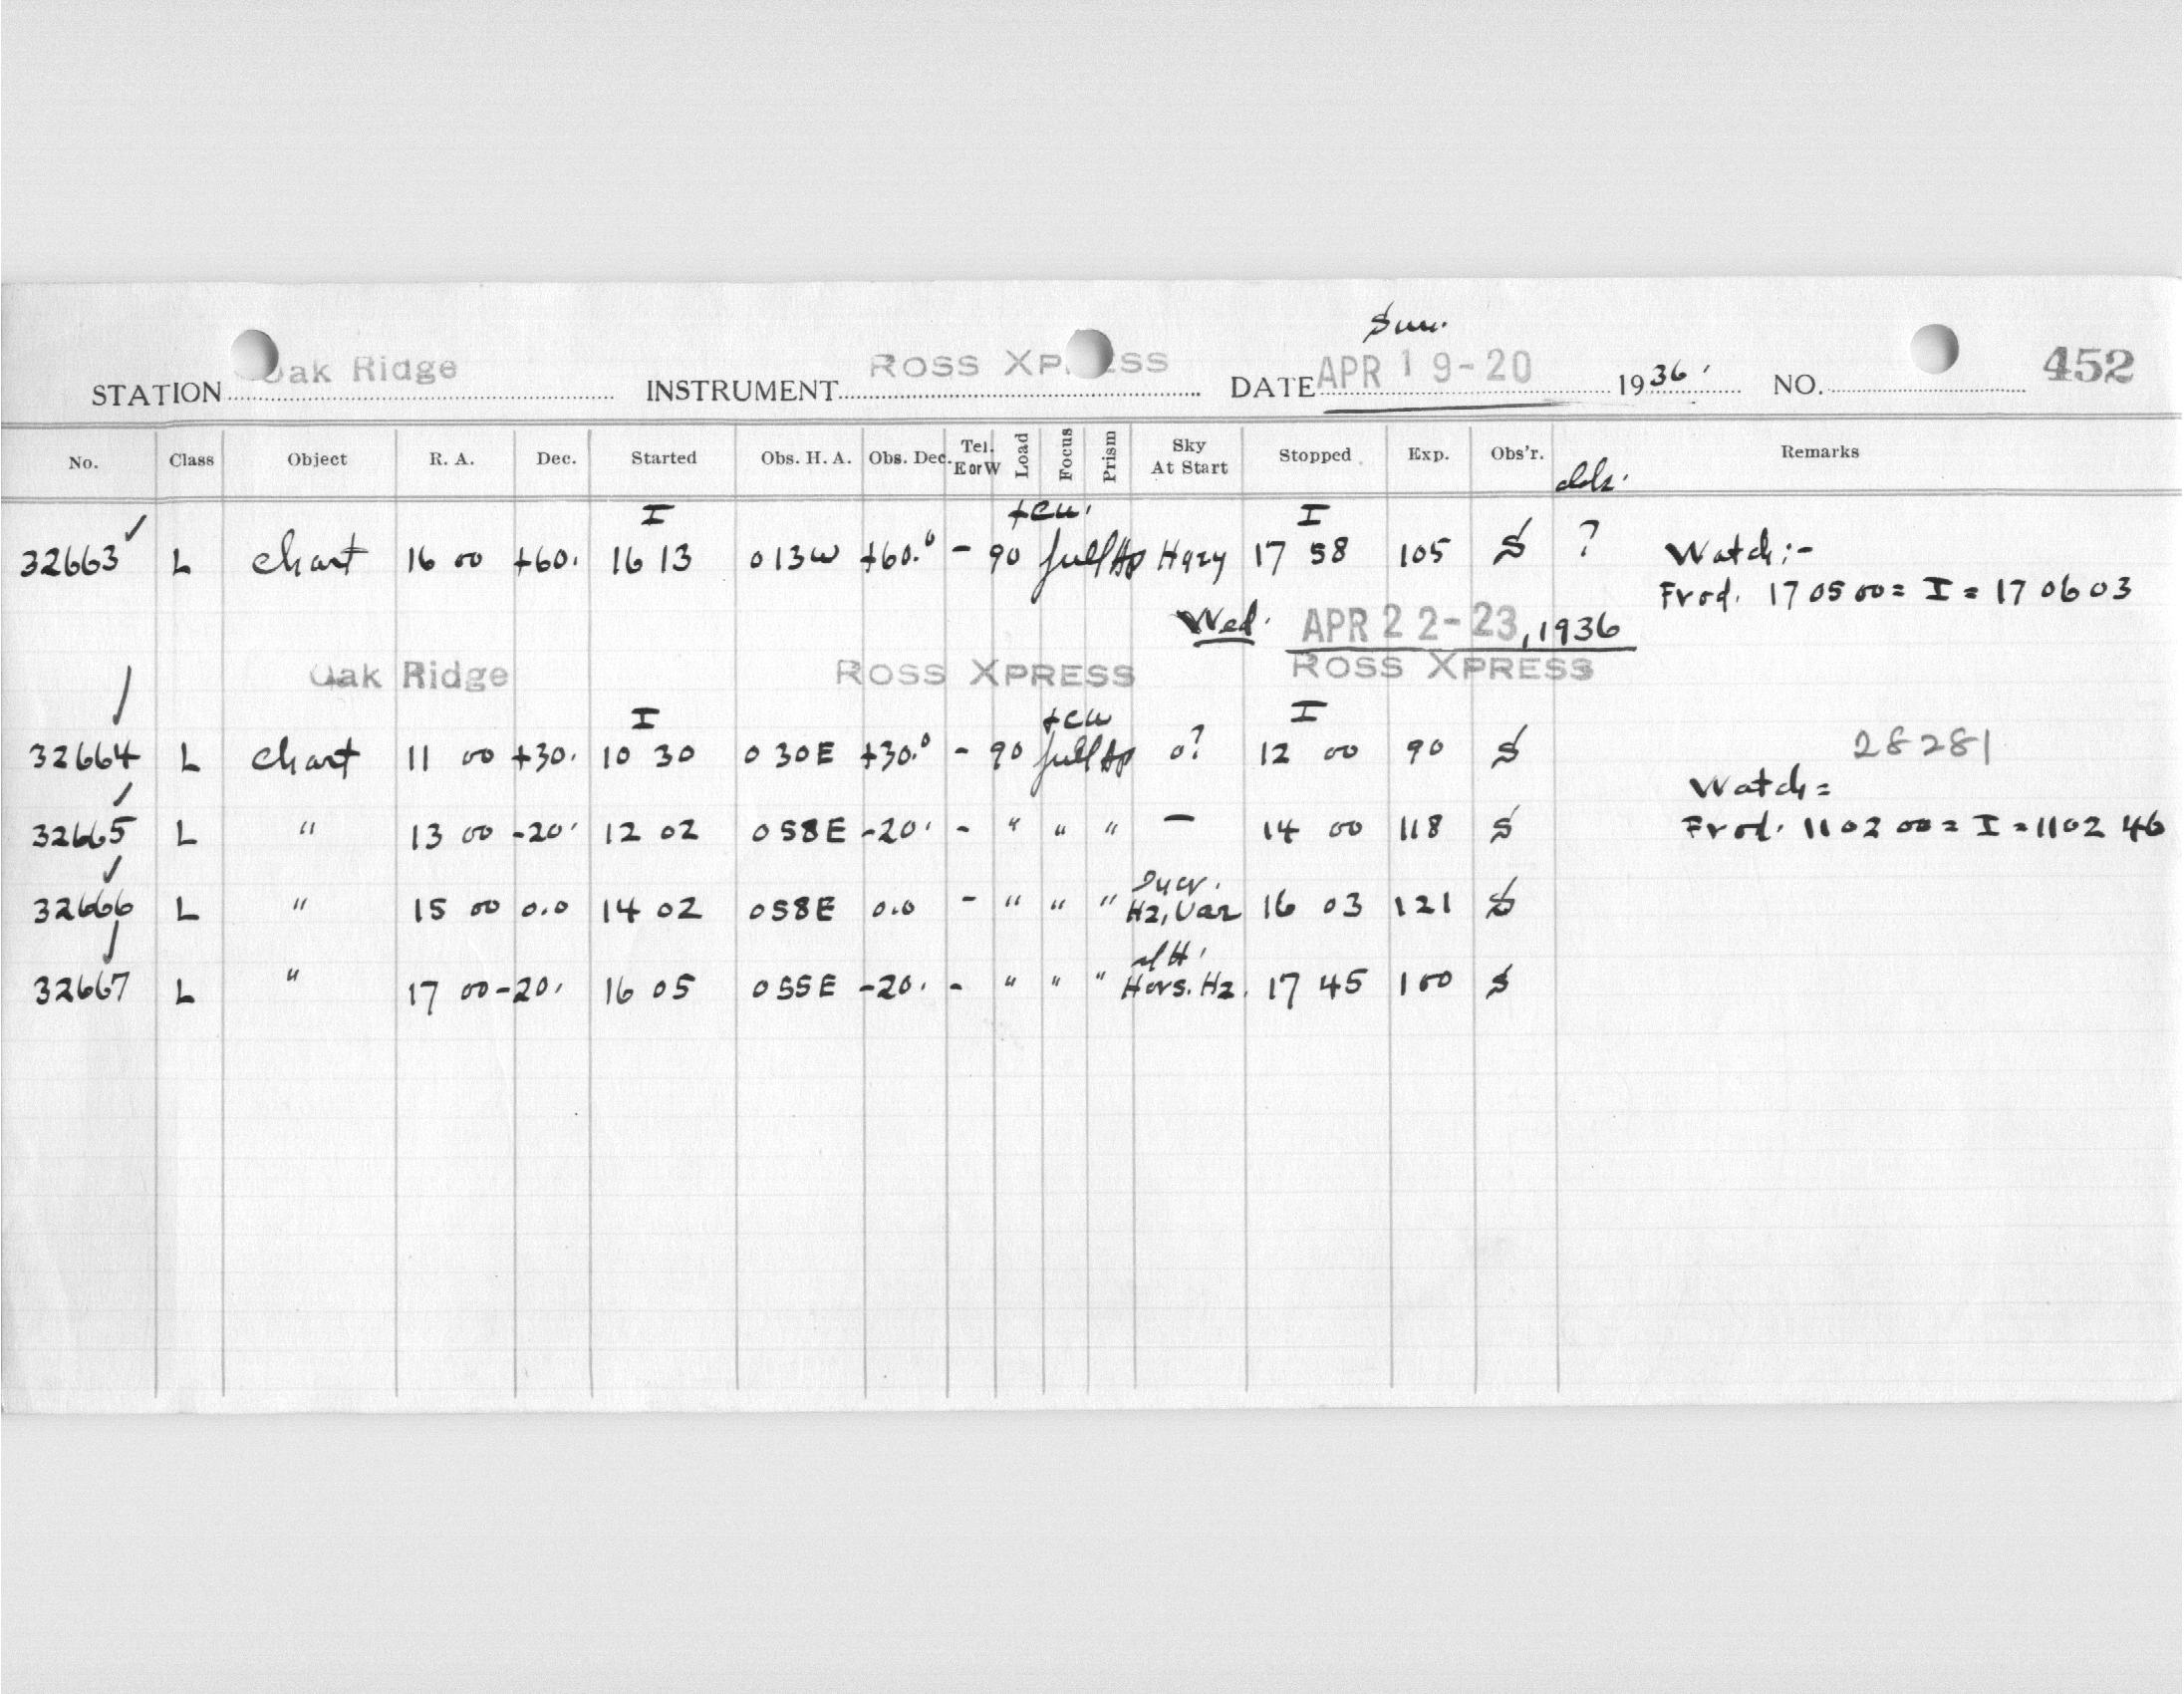 Sun.
STATION Oak Ridge INSTRUMENT ROSS XPRESS DATE APR 19-20 1936. NO. 452
No. Class Object R. A. Dec. Started Obs. H. A. Obs. Dec. Tel. E or W Load Focus Prism Sky At Start Stopped Exp. Obs'r. Remarks
I I
32663 ✓ L Chart 16 00 +60. 16 13 0 13 W +60.° - 90 full Ap Hazy 17 58 105 S ? Watch:-
Frod. 17 05 00 = I = 17 06 03
Wed. APR 22-23, 1936
Oak Ridge ROSS XPRESS ROSS XPRESS
I I
32664 L Chart 11 00 +30. 10 30 0 30 E +30.° - 90 full Ap 0? 12 00 90 S 28281
Watch =
32665 ✓ L " 13 00 -20. 12 02 0 58 E -20. - " " " — 14 00 118 S Frod. 11 02 00 = I = 11 02 46
32666 ✓ L " 15 00 0.0 14 02 0 58 E 0.0 - " " " Hz, Var 16 03 121 S
32667 L " 17 00 -20. 16 05 0 55 E -20. - " " " Hors. Hz. 17 45 100 S